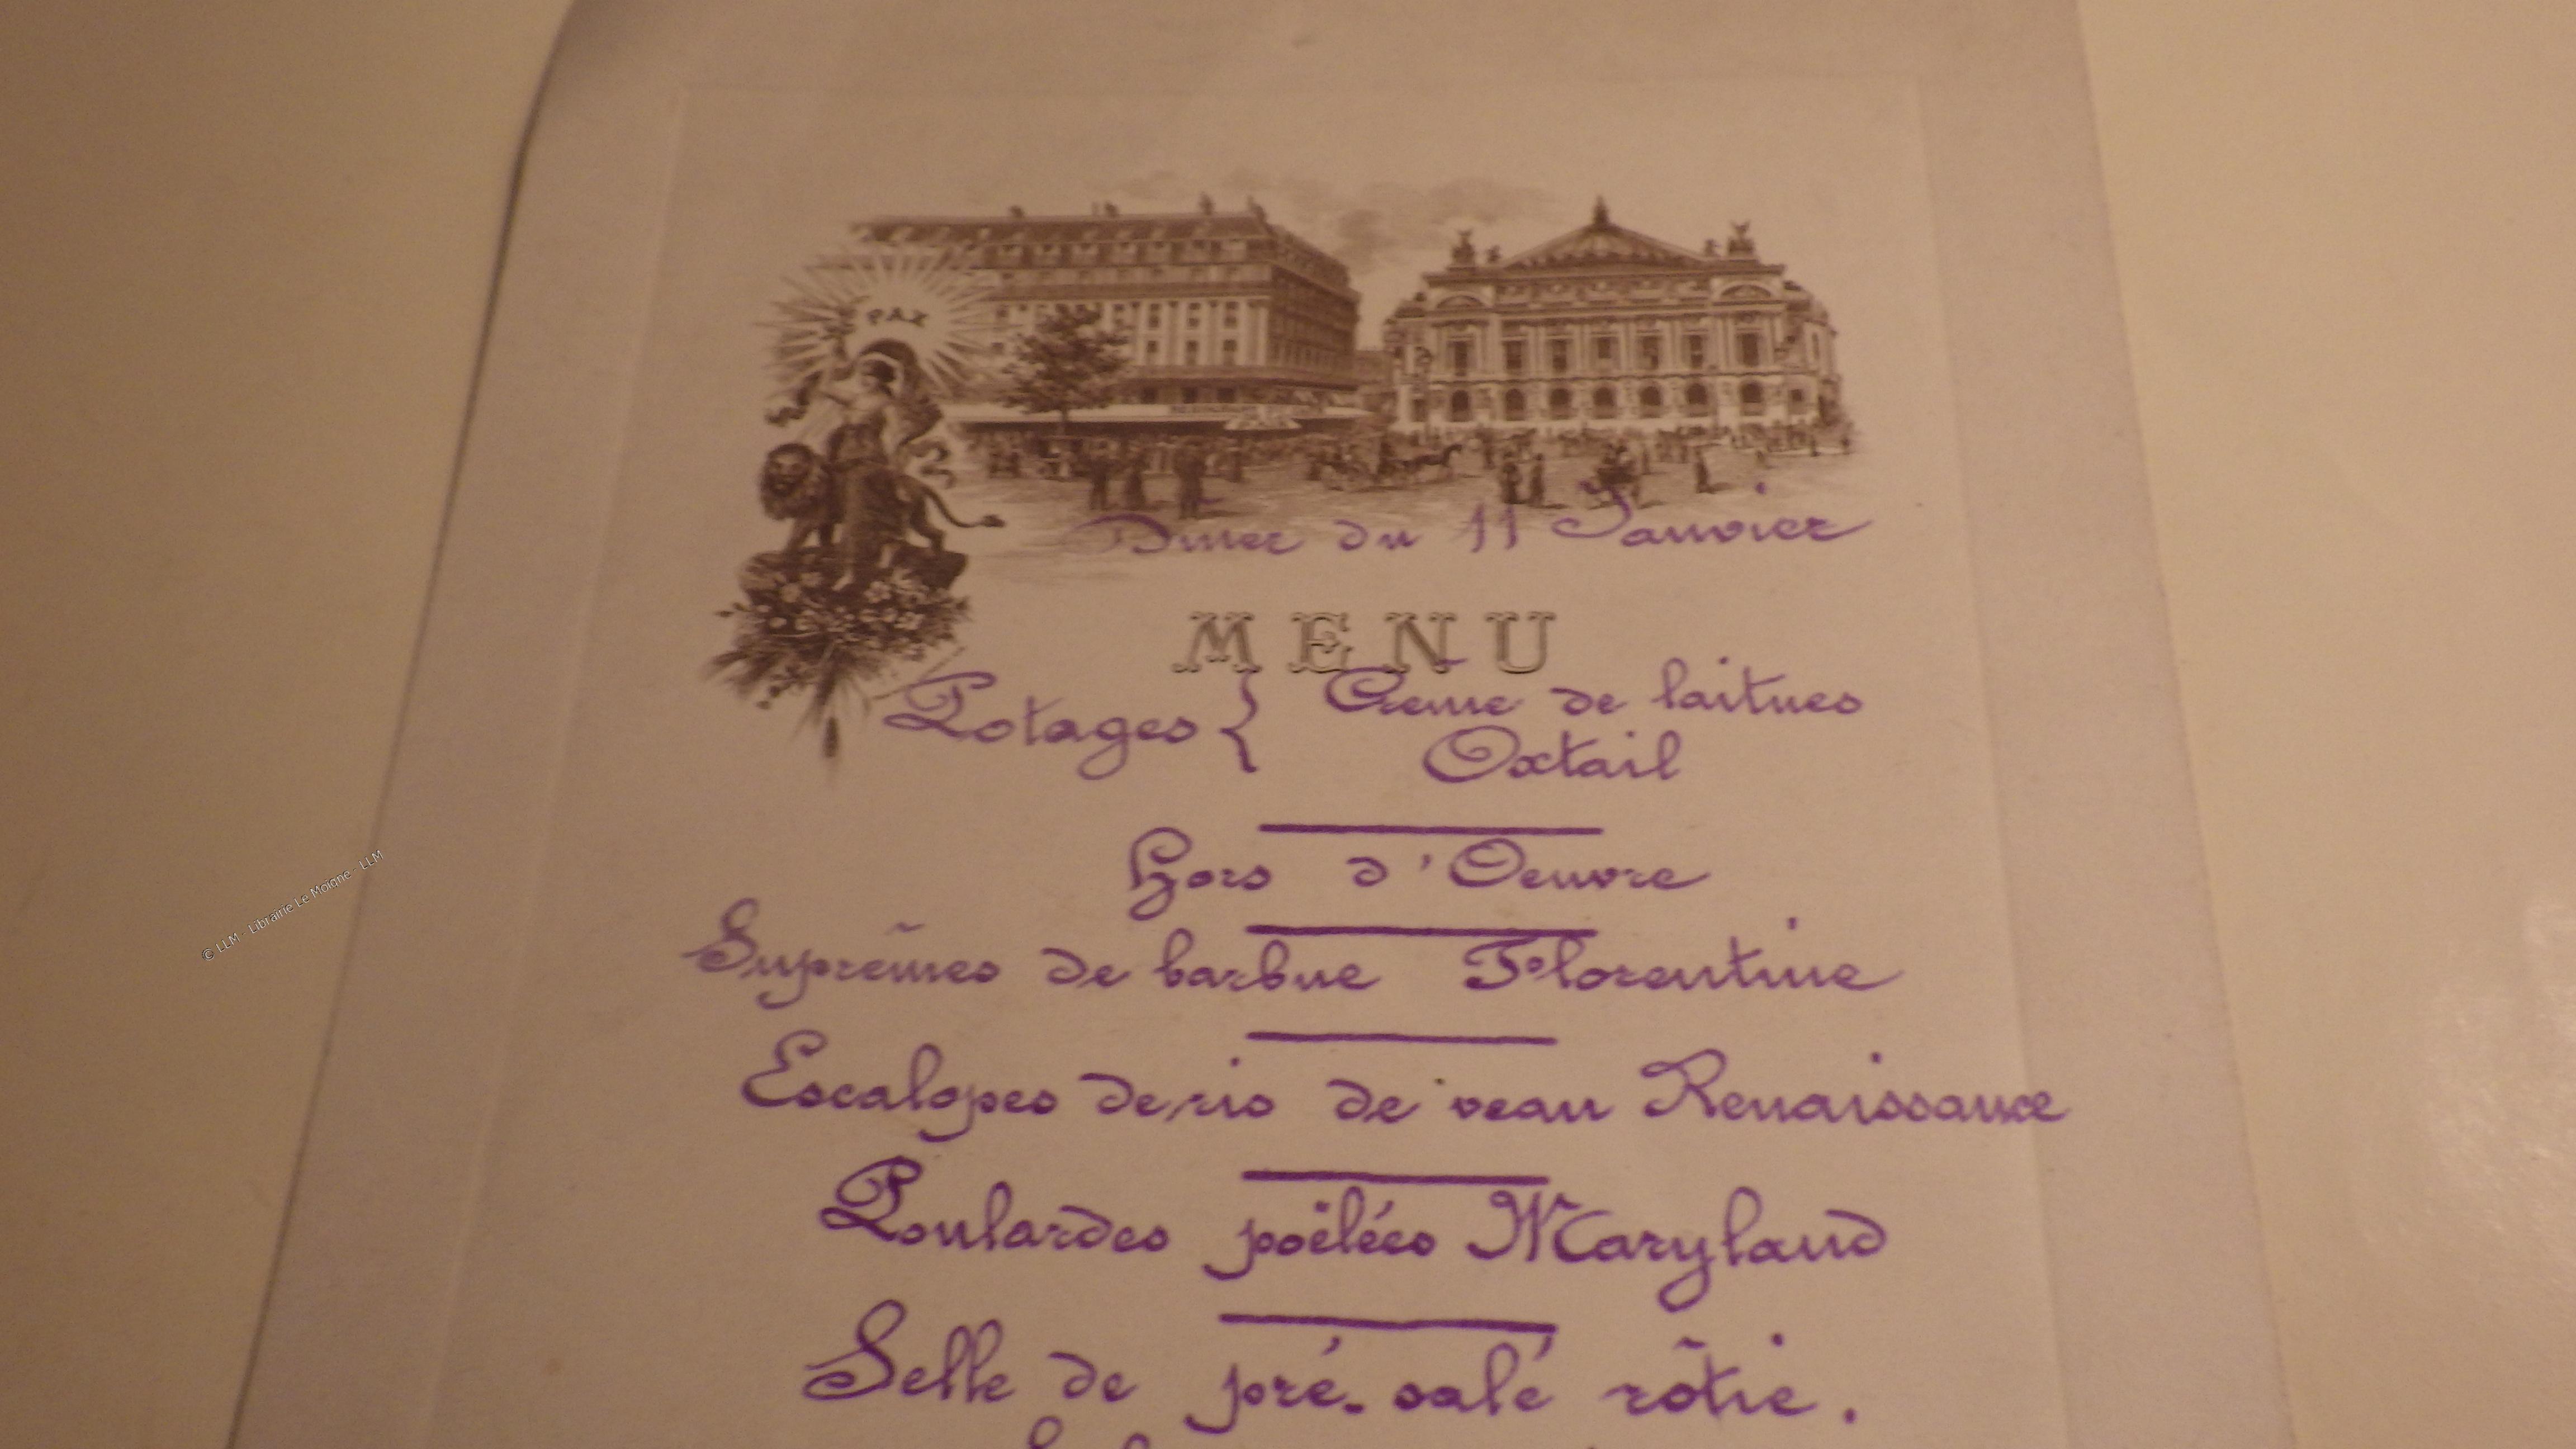 PAX
Diner du 11 Janvier
MENU
Potages { Creme de laitues
Oxtail
Hors d'Oeuvre
Suprêmes de barbue Florentine
Escalopes de ris de veau Renaissance
Poulardes poëlées Maryland
Selle de pré-salé rôtie.
© LLM - Librairie Le Moigne - LLM